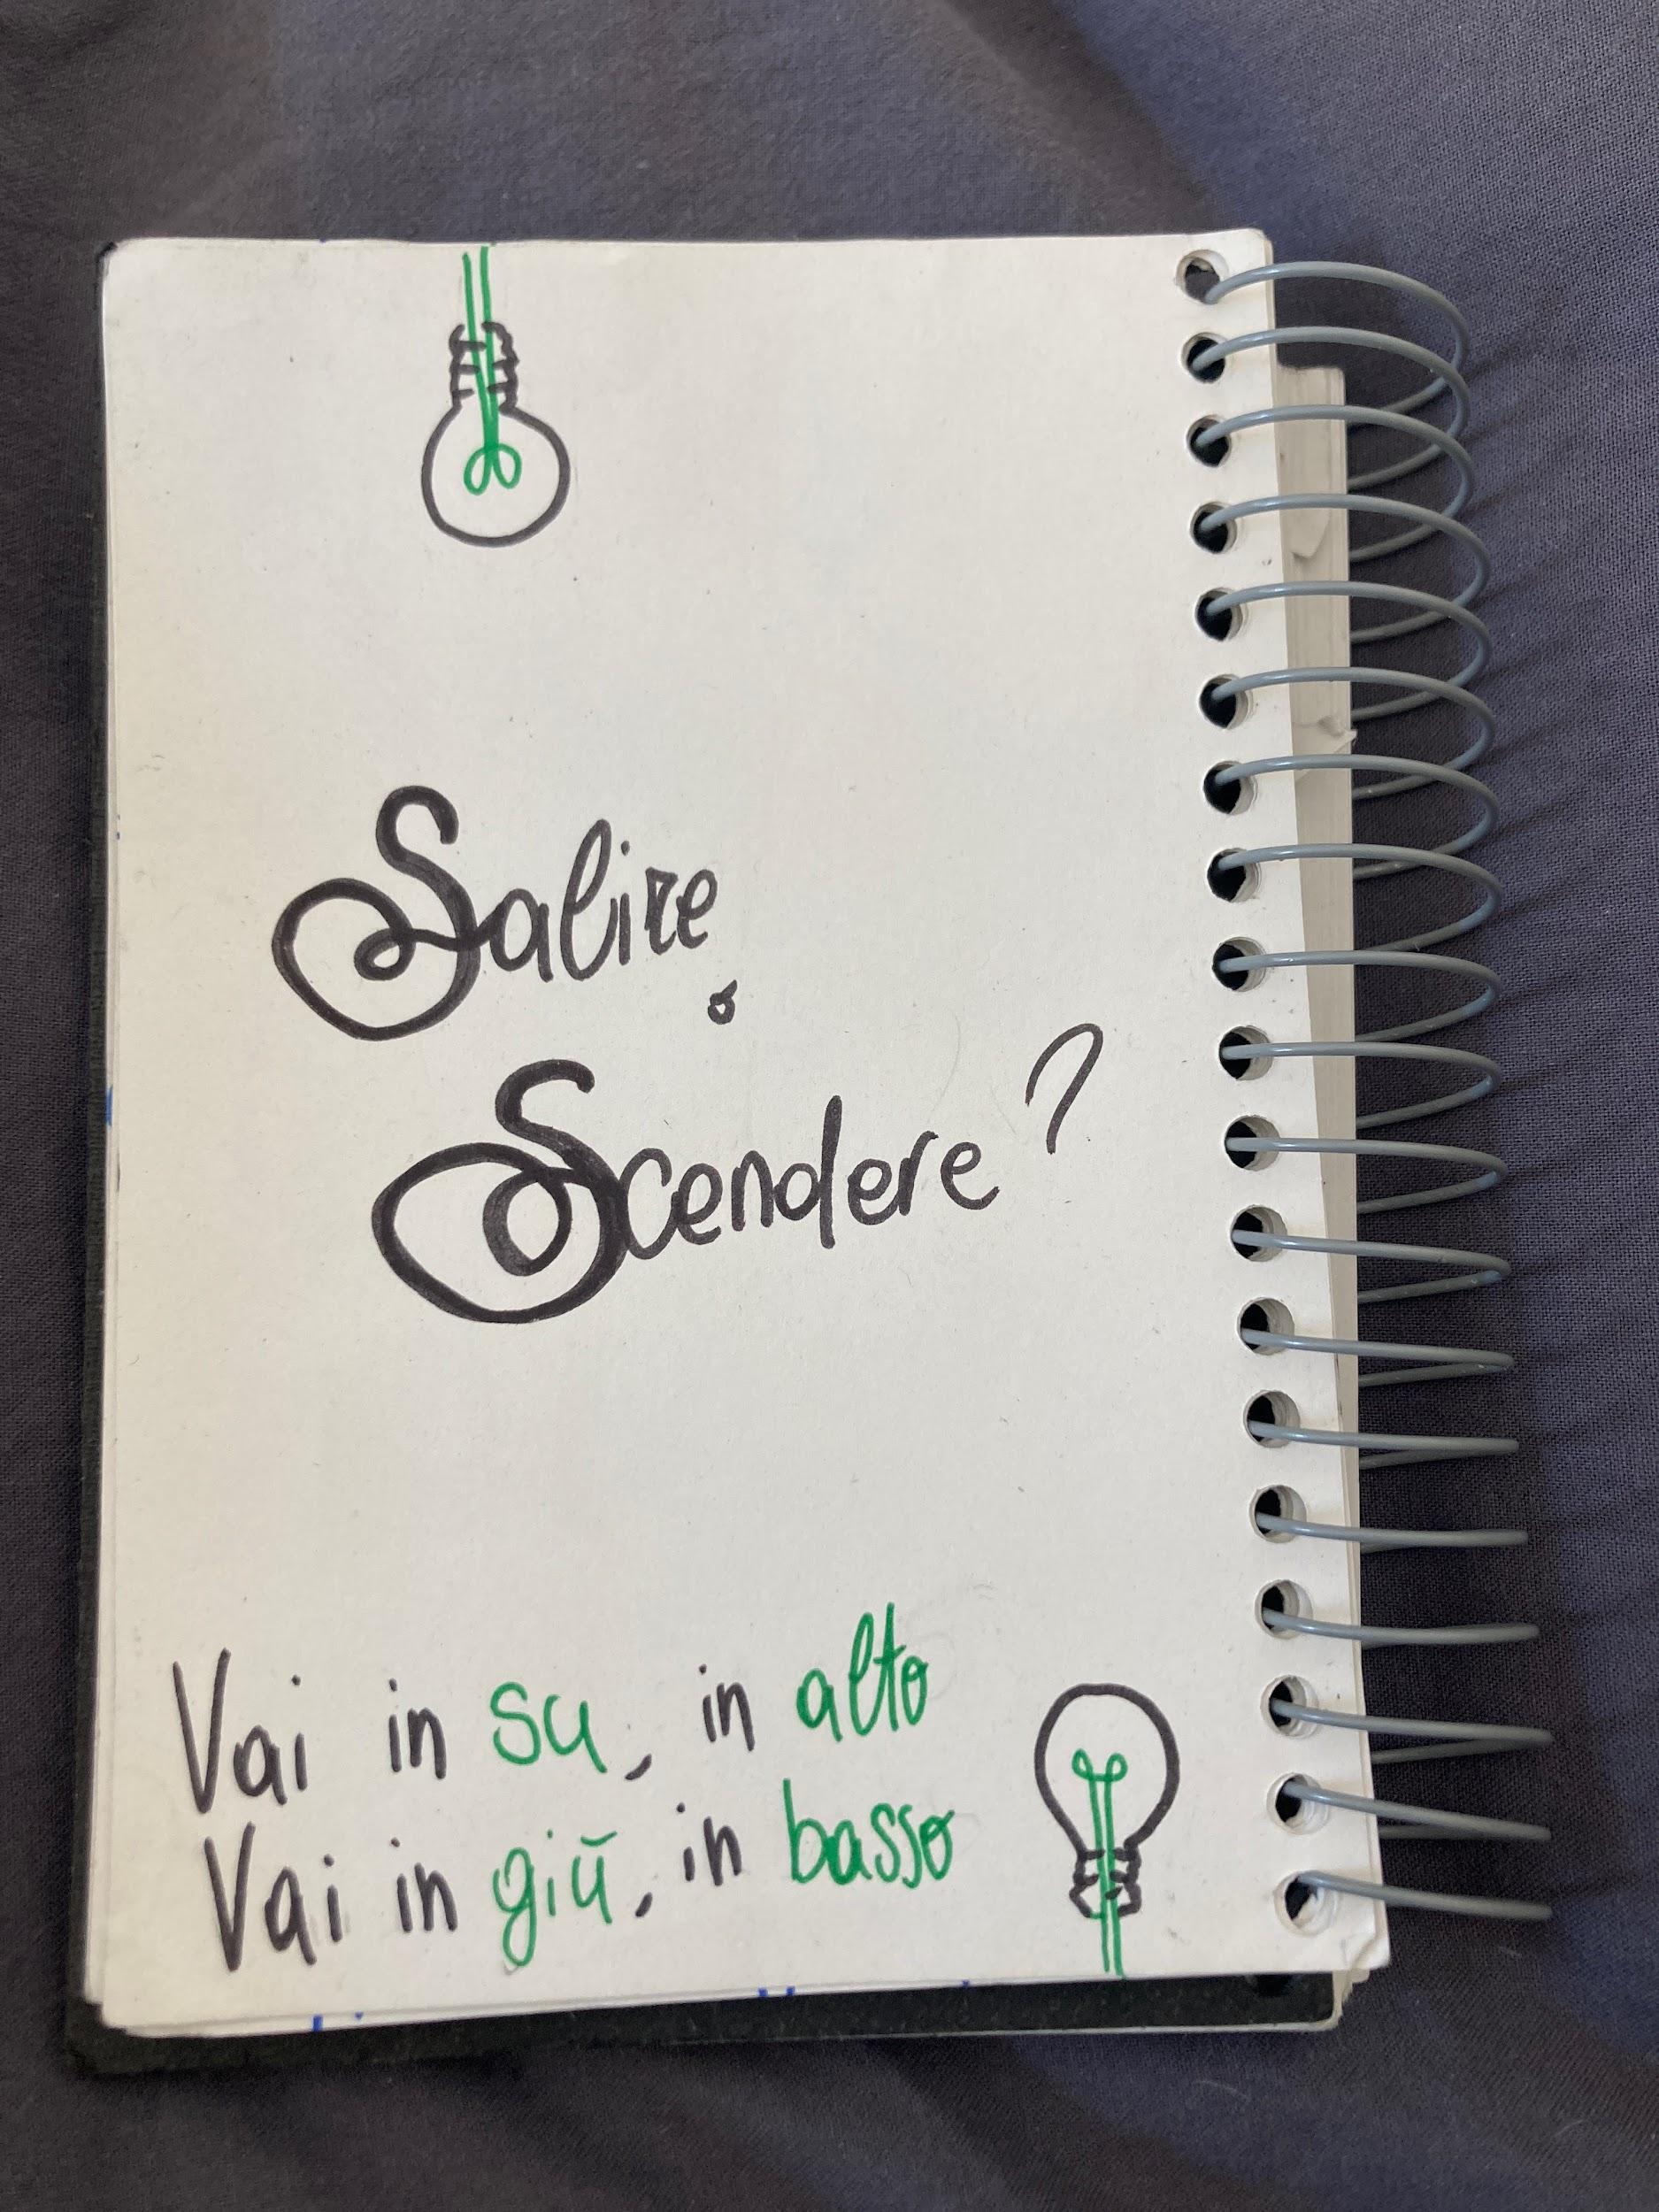 Salire
o
Scendere?
Vai in su, in alto
Vai in giù, in basso